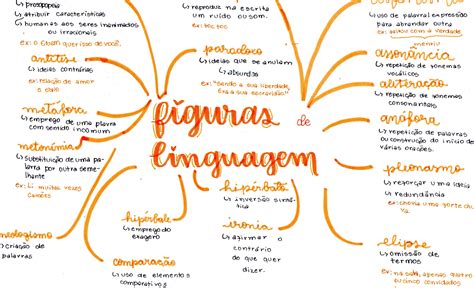 ↳ prosopopeia
↳ atribuir características
↳ humanas aos seres inanimados
ou irracionais
ex: o
antítese
↳ ideias contrárias
ex: relação do amor
e
metáfora
↳ emprego de uma palavra
com sentido incomum
metonímia
↳ substituição de uma pa-
lavra por outra semelhante
ex: li muitas vezes
camões
neologismo
↳ criação de
palavras
↳ reproduz na escrita
um ruído ou som.
ex: tic toc
paradoxo
↳ ideias que se anulam
↳ absurdos
ex: "sendo a sua liberdade
era a sua escravidão"
figuras de
linguagem
hipérbole
↳ emprego do
exagero
comparação
↳ uso de elementos
comparativos
hipérbato
↳ inversão sintá-
tica
ironia
↳ afirmar o
contrário
do que quer
dizer.
↳ uso de palavra/expressão
para abrandar outra
ex: faltou com a verdade
mentiu
assonância
↳ repetição de fonemas
vocálicos
aliteração
↳ repetição de fonemas
consonantais
anáfora
↳ repetição de palavras
ou construção do início de
várias orações.
pleonasmo
↳ reforçar uma ideia
↳ redundância
ex: chovia uma forte chu
va
elipse
↳ omissão de
termos
ex: na sala, apenas quatro